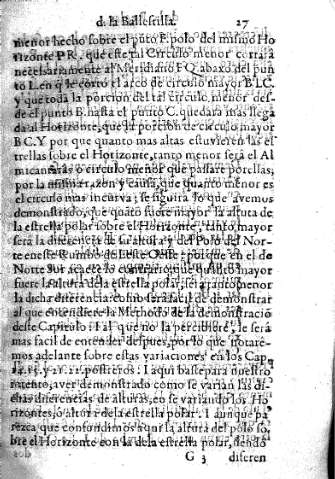 de la Ballestilla. 27
menor hecho sobre el pũto P. polo del mismo Ho
rizonte PR. que este tal Circulo menor cortarà
necesariamente al Meridiano FQ abaxo del pun
to L. en q̃ le cortò el arco de circulo mayor BLC.
y que toda la porcion del tal circulo menor des-
de el punto B. hasta el punto C. quedarà mas llega
da al Horizonte, que la porcion de circulo mayor
BC. Y por que quanto mas altas estuvieren las es
trellas sobre el Horizonte, tanto menor serà el Al
micantaras o circulo menor que passare por ellas,
por la misma razon y causa, que quanto menor es
el circulo mas incurva; se seguira lo que avemos
demonstrado, que quãto fuere mayor la altura de
la estrella polar sobre el Horizonte, tanto mayor
serà la diferencia de su altura y del Polo del Nor-
te en este Rumbo de Leste Oeste; porque en el de
Norte Sur sucede lo contrario, que quanto mayor
fuere la altura de la estrella polar, serà tanto menor
la dicha diferencia: como serà facil de demonstrar
al que entendiere la Methodo de la demonstraciō
deste Capitulo: I al que no la percibiere, le serà
mas facil de entender despues, por lo que notarè-
mos adelante sobre estas variaciones en los Cap.
postreros. I aqui baste para nuestro
intento, aver demonstrado como se varian las di-
chas diferencias de alturas, como se variando los Ho
rizontes, ò altura de la estrella polar. I aunque pa
rezca que confundimos aqui la altura del polo so-
bre el Horizonte con la de la estrella polar, siendo
G 3 diferen